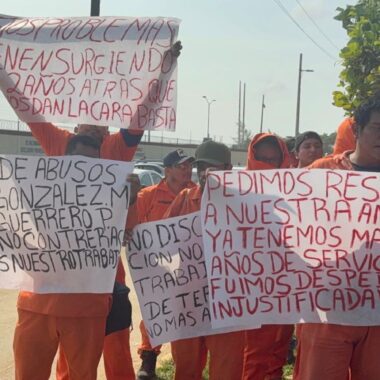 OS PROBLEMAS
ENEN SURGIENDO
2 AÑOS ATRAS QUE
OS DAN LA CARA BASTA
DE ABUSOS
GONZALEZ.M
GUERRERO P
NO CONTRERA
S NUESTRO TRABAJ
NO DISC
CION NO
TRABA
DE TE
NO MAS A
PEDIMOS RES
A NUESTRA AN
YA TENEMOS MA
AÑOS DE SERVIC
FUIMOS DESPE
INJUSTIFICADA